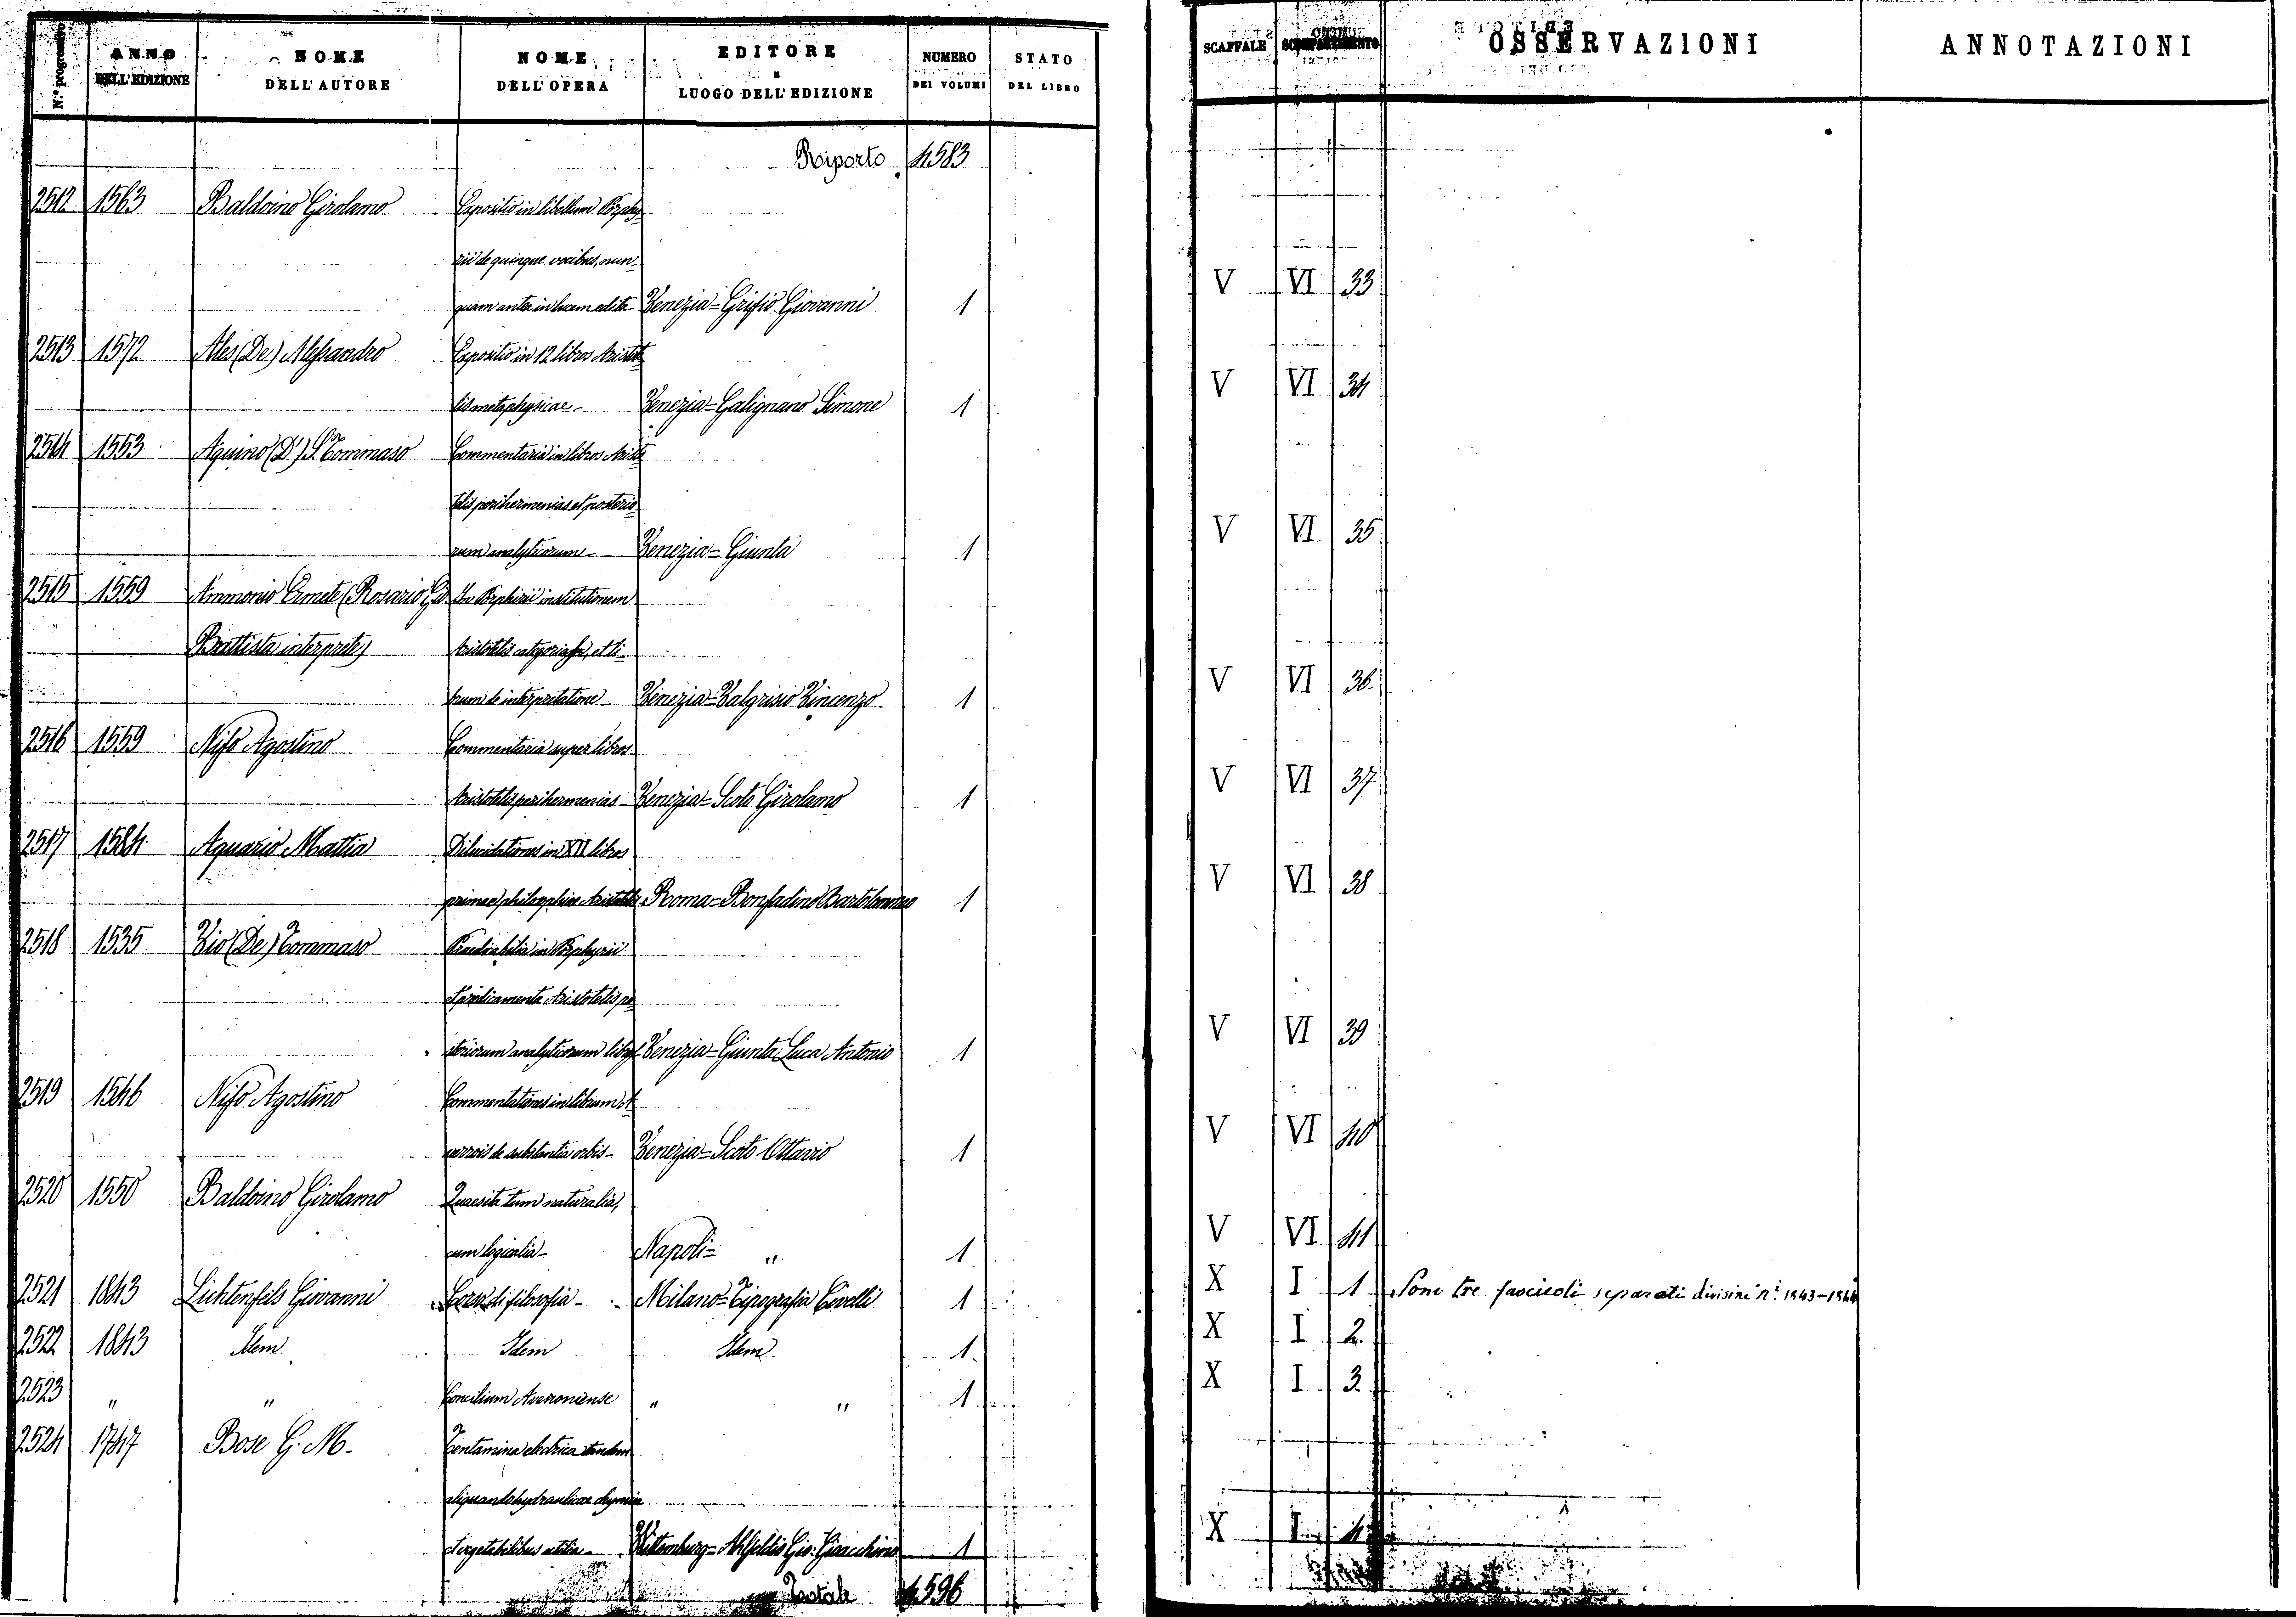 N.° progressivo ANNO DELL'EDIZIONE NOME DELL'AUTORE NOME DELL'OPERA EDITORE E LUOGO DELL'EDIZIONE NUMERO DEI VOLUMI STATO DEL LIBRO SCAFFALE SCOMPARTIMENTO OSSERVAZIONI ANNOTAZIONI
Riporto 4583
2512 1563 Baldoino Girolamo Expositio in libellum Porphy-
rii de quinque vocibus, nun-
quam antea in lucem edita Venezia = Grifio Giovanni 1 V VI 33
2513 1572 Ales (De) Alessandro Expositio in 12 libros Aristot-
lis metaphysicae - Venezia = Galignano Simone 1 V VI 34
2514 1553 Aquino (D') S. Tommaso Commentaria in libros Aristo-
telis perihermenias et posterio-
rum analyticorum - Venezia = Giunta 1 V VI 35
2515 1559 Ammonio Ermete (Rosario Gio In Porphirii institutionem
Battista interprete) Aristotelis categorias, et li-
brum de interpretatione - Venezia = Valgrisio Vincenzo 1 V VI 36
2516 1559 Nifo Agostino Commentaria super libros
Aristotelis perihermenias - Venezia = Scoto Girolamo 1 V VI 37
2517 1584 Aquario Mattia Dilucidationes in XII libros
primae philosophiae Aristotelis Roma = Bonfadino Bartolomeo 1 V VI 38
2518 1535 Vio (De) Tommaso Praedicabilia in Porphyrii
et praedicamenta Aristotelis po-
steriorum analyticorum libros Venezia = Giunta Luca Antonio 1 V VI 39
2519 1546 Nifo Agostino Commentationes in librum A-
verrois de substantia orbis - Venezia = Scoto Ottavio 1 V VI 40
2520 1550 Baldoino Girolamo Quaesita tum naturalia,
cum logicalia - Napoli = " 1 V VI 41
2521 1843 Lichtenfels Giovanni Corso di filosofia - Milano = Tipografia Civelli 1 X I 1 Sono tre fascicoli separati divisi ni n.i 1843-1844
2522 1843 Idem Idem Idem 1 X I 2
2523 " " Concilium Avenoniense " " 1 X I 3
2524 1747 Bose G. M. Tentamina electrica tandem
aliquando hydraulicae chymiae
et vegetabilibus utilia - Wittemburg = Ahlfeldio Gio: Gioacchino 1 X I 4
Totale 4596